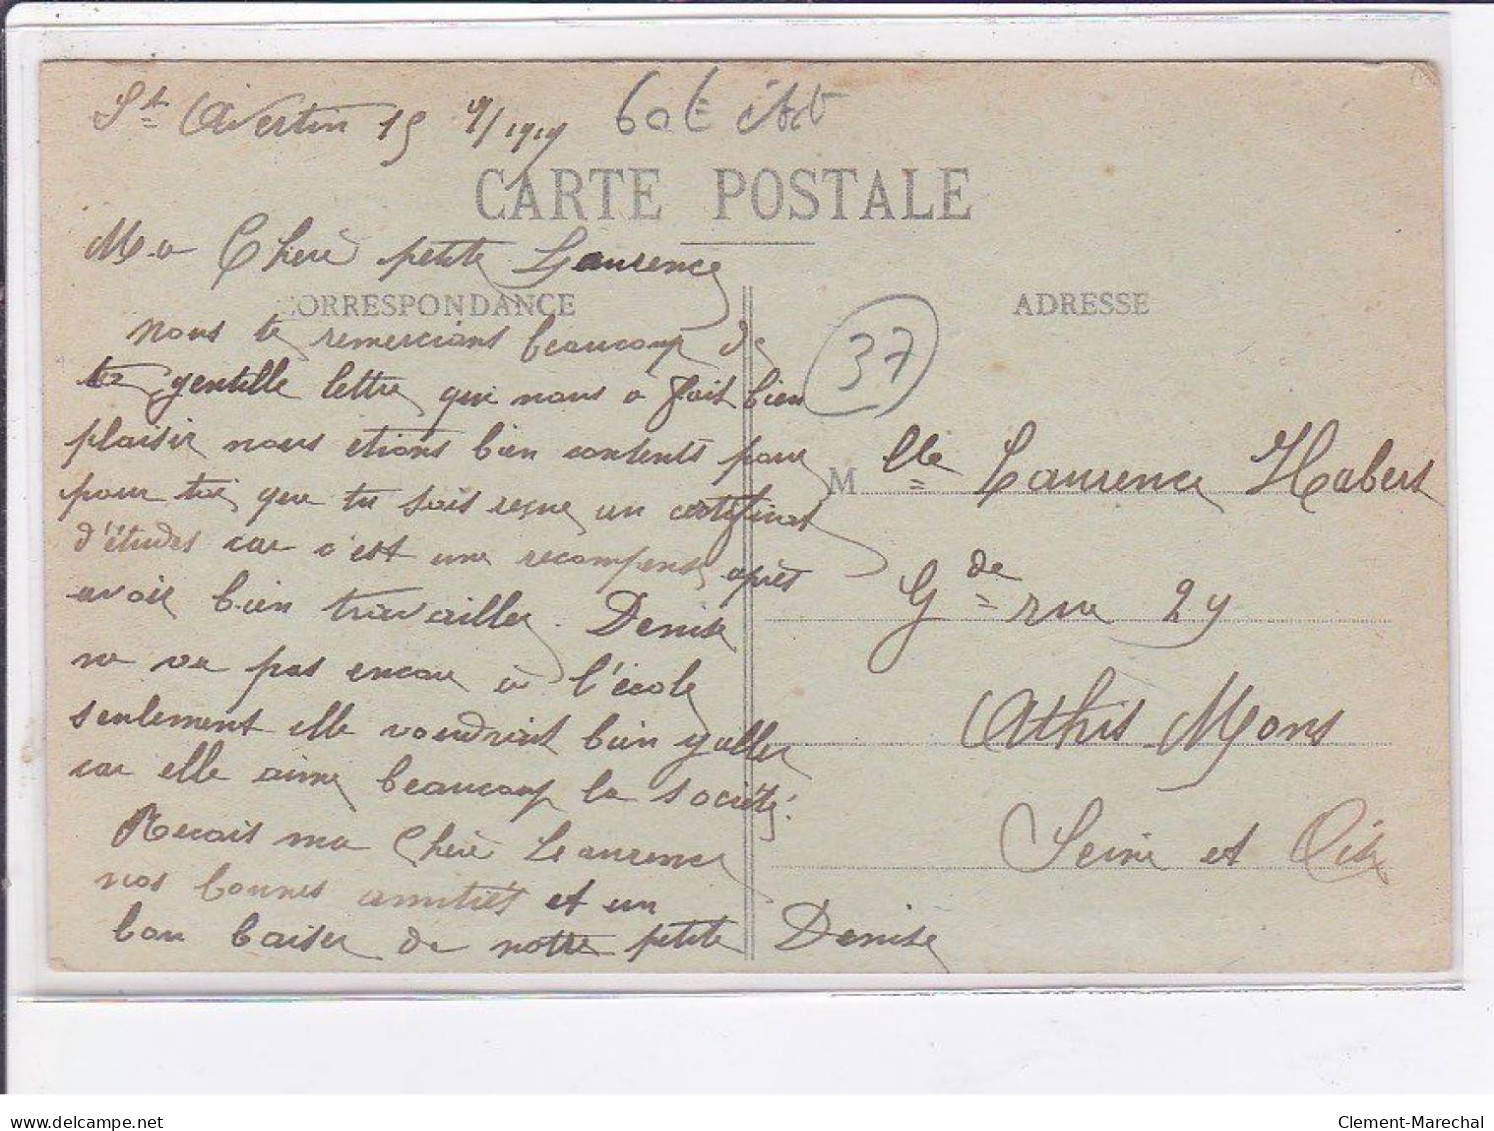 St Avertin 15 9/1919
60€
CARTE POSTALE
Ma Chere petite Laurence
CORRESPONDANCE
ADRESSE
37
nous te remercions beaucoup de
ta gentille lettre qui nous a fait bien
plaisir nous etions bien contents pour
pour toi que tu sois reçue un certificat
d'études car c'est une recompense après
avoir bien travailler. Denise
ne va pas encore à l'école
seulement elle voudrait bien y aller
car elle aime beaucoup la société!
Recois ma Chere Laurence
nos bonnes amitiés et un
bon baiser de notre petite Denise
Mlle Laurence Habert
Gde rue 29
Athis Mons
Seine et Oise
delcampe.net
Clement-Marechal